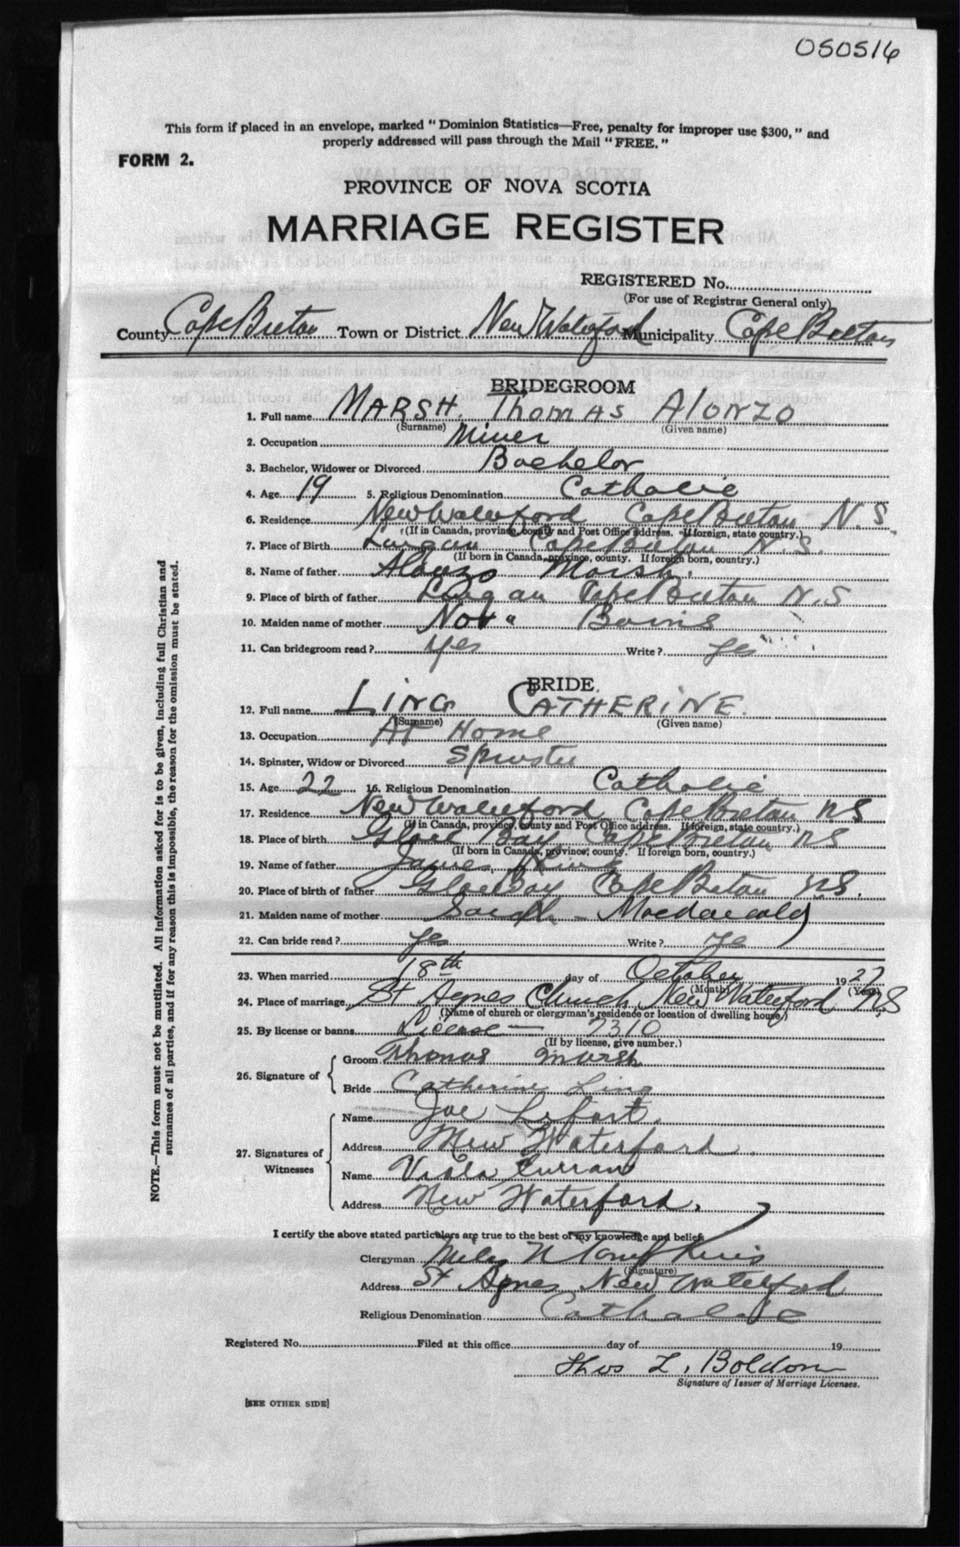 050516
This form if placed in an envelope, marked "Dominion Statistics—Free, penalty for improper use $300," and
properly addressed will pass through the Mail "FREE."
FORM 2.
PROVINCE OF NOVA SCOTIA
MARRIAGE REGISTER
REGISTERED No.
(For use of Registrar General only)
County Cape Breton Town or District New Waterford Municipality Cape Breton
BRIDEGROOM
1. Full name MARSH, Thomas Alonzo
(Surname) (Given name)
2. Occupation Miner
3. Bachelor, Widower or Divorced Bachelor
4. Age 19 5. Religious Denomination Catholic
6. Residence New Waterford Cape Breton N.S
(If in Canada, province, county and Post Office address. If foreign, state country.)
7. Place of Birth Lingan Cape Breton N.S.
(If born in Canada, province, county. If foreign born, country.)
8. Name of father Alonzo Marsh.
9. Place of birth of father Lingan Cape Breton N.S
10. Maiden name of mother Nora
11. Can bridegroom read? Yes Write? Yes
BRIDE.
12. Full name LING CATHERINE.
(Surname) (Given name)
13. Occupation At Home
14. Spinster, Widow or Divorced Spinster
15. Age 22 16. Religious Denomination Catholic
17. Residence New Waterford Cape Breton NS
(If in Canada, province, county and Post Office address. If foreign, state country.)
18. Place of birth Glace Bay Cape Breton NS
(If born in Canada, province, county. If foreign born, country.)
19. Name of father James Ling
20. Place of birth of father Glace Bay Cape Breton NS.
21. Maiden name of mother Sarah - Macdonald
22. Can bride read? Yes Write? Yes
23. When married 18th day of October 1927
(Month) (Year)
24. Place of marriage St Agnes Church, New Waterford NS
(Name of church or clergyman's residence or location of dwelling house)
25. By license or banns License — 7310
(If by license, give number.)
26. Signature of
Groom Thomas Marsh
Bride Catherine Ling
27. Signatures of Witnesses
Name Joe Lefort.
Address New Waterford.
Name Viola Curran
Address New Waterford.
I certify the above stated particulars are true to the best of my knowledge and belief.
Clergyman Miles N Tompkins
(Signature)
Address St Agnes New Waterford
Religious Denomination Catholic
Registered No. Filed at this office day of 19
Thos L. Boldon
Signature of Issuer of Marriage Licenses.
[SEE OTHER SIDE]
NOTE.—This form must not be mutilated. All information asked for is to be given, including full Christian and
surnames of all parties, and if for any reason this is impossible, the reason for the omission must be stated.